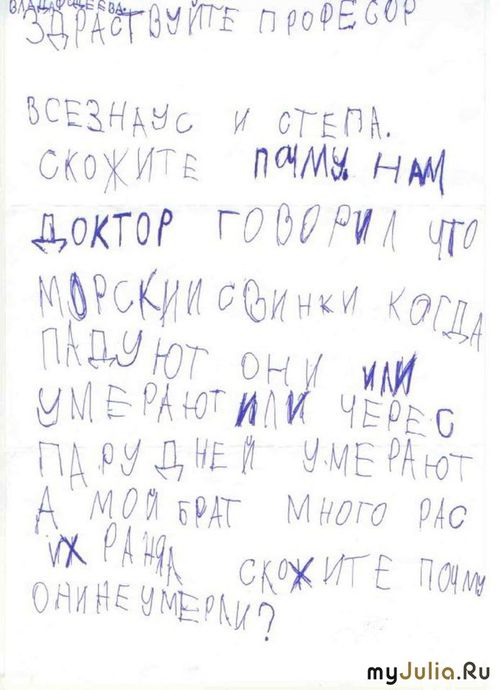 ЗДРАСТВУЙТЕ ПРОФЕСОР
ВСЕЗНАУС И СТЕПА.
СКОЖИТЕ ПОЧМУ НАМ
ДОКТОР ГОВОРИЛ ЧТО
МОРСКИИ СВИНКИ КОГДА
ПАДУЮТ ОНИ ИЛИ
УМЕРАЮТ ИЛИ ЧЕРЕС
ПАРУ ДНЕЙ УМЕРАЮТ
А МОЙ БРАТ МНОГО РАС
ИХ РАНЯЛ СКОЖИТЕ ПОЧМУ
ОНИ НЕ УМЕРЛИ?
myJulia.Ru